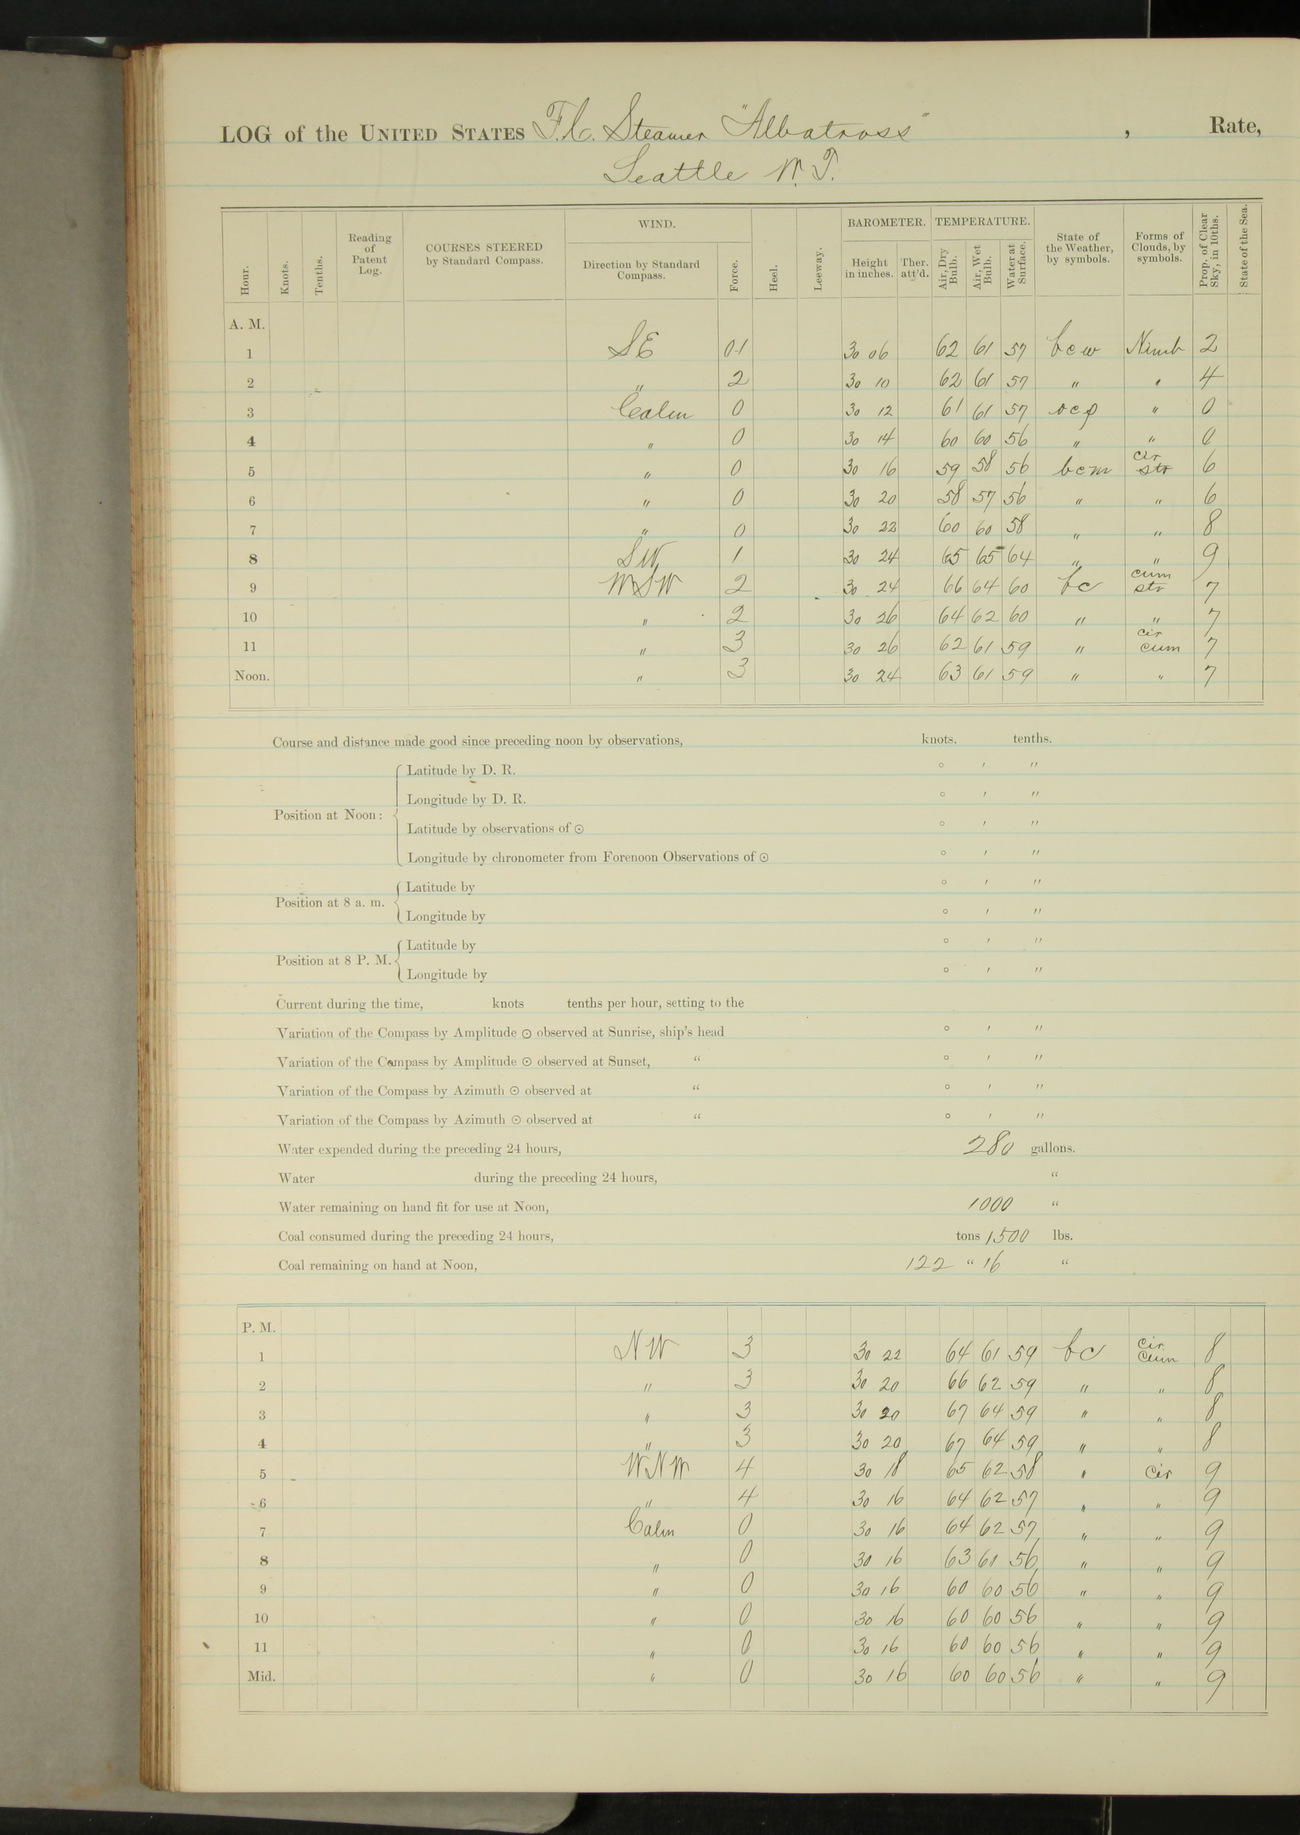 LOG of the UNITED STATES F.C. Steamer "Albatross" , Rate,
Seattle W. T.
Hour. Knots. Tenths. Reading of Patent Log. COURSES STEERED by Standard Compass. WIND. Direction by Standard Compass. Force. Heel. Leeway. BAROMETER. Height in inches. Ther. att'd. TEMPERATURE. Air, Dry Bulb. Air, Wet Bulb. Water at Surface. State of the Weather, by symbols. Forms of Clouds, by symbols. Prop. of Clear Sky, in 10ths. State of the Sea.
A. M.
1 SE 0.1 30 06 62 61 57 bcw Nimb 2
2 " 2 30 10 62 61 57 " " 4
3 Calm 0 30 12 61 61 57 ocp " 0
4 " 0 30 14 60 60 56 " " 0
5 " 0 30 16 59 58 56 bcm cir str 6
6 " 0 30 20 58 57 56 " " 6
7 " 0 30 22 60 60 58 " " 8
8 SW 1 30 24 65 65 64 " " 9
9 WSW 2 30 24 66 64 60 bc cum str 7
10 " 2 30 26 64 62 60 " " 7
11 " 3 30 26 62 61 59 " cir cum 7
Noon. " 3 30 24 63 61 59 " " 7
Course and distance made good since preceding noon by observations, knots. tenths.
Position at Noon: Latitude by D. R. ° ′ ″
Longitude by D. R. ° ′ ″
Latitude by observations of ☉ ° ′ ″
Longitude by chronometer from Forenoon Observations of ☉ ° ′ ″
Position at 8 a. m. Latitude by ° ′ ″
Longitude by ° ′ ″
Position at 8 P. M. Latitude by ° ′ ″
Longitude by ° ′ ″
Current during the time, knots tenths per hour, setting to the
Variation of the Compass by Amplitude ☉ observed at Sunrise, ship's head ° ′ ″
Variation of the Compass by Amplitude ☉ observed at Sunset, " ° ′ ″
Variation of the Compass by Azimuth ☉ observed at " ° ′ ″
Variation of the Compass by Azimuth ☉ observed at " ° ′ ″
Water expended during the preceding 24 hours, 280 gallons.
Water during the preceding 24 hours, "
Water remaining on hand fit for use at Noon, 1000 "
Coal consumed during the preceding 24 hours, tons 1500 lbs.
Coal remaining on hand at Noon, 122 " 16 "
P. M.
1 NW 3 30 22 64 61 59 bc Cir. Cum 8
2 " 3 30 20 66 62 59 " " 8
3 " 3 30 20 67 64 59 " " 8
4 " 3 30 20 67 64 59 " " 8
5 WNW 4 30 18 65 62 58 " Cir 9
6 " 4 30 16 64 62 57 " " 9
7 Calm 0 30 16 64 62 57 " " 9
8 " 0 30 16 63 61 56 " " 9
9 " 0 30 16 60 60 56 " " 9
10 " 0 30 16 60 60 56 " " 9
11 " 0 30 16 60 60 56 " " 9
Mid. " 0 30 16 60 60 56 " " 9